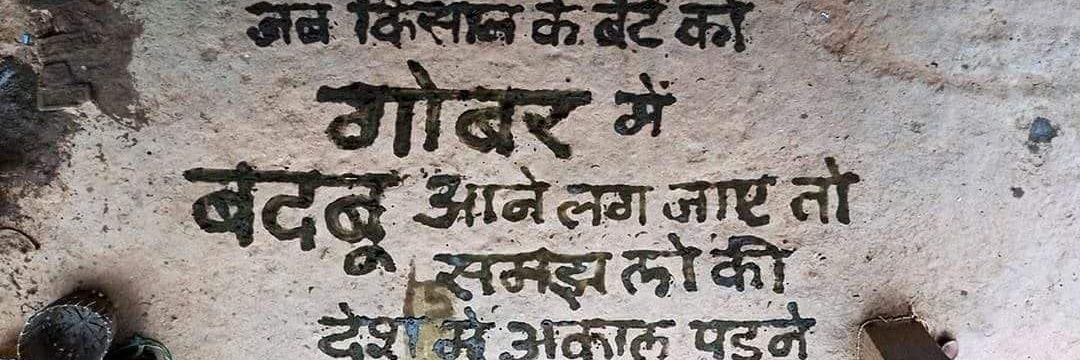 जब किसान के बेटे को
गोबर में
बदबू आने लग जाए तो
समझ लो की
देश मे अकाल पडने